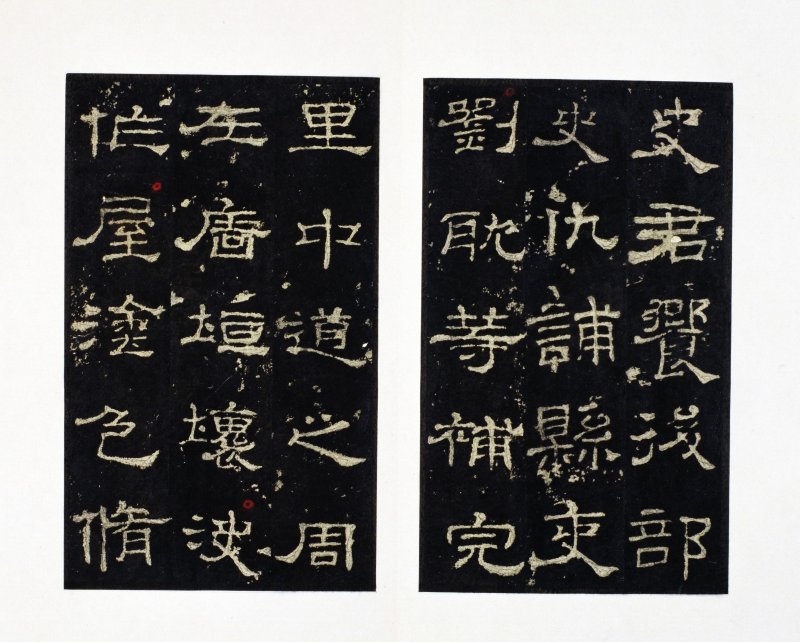 史君饗後部
史仇誧縣吏
劉耽等補完
里中道之周
左廧垣壞決
作屋塗色脩